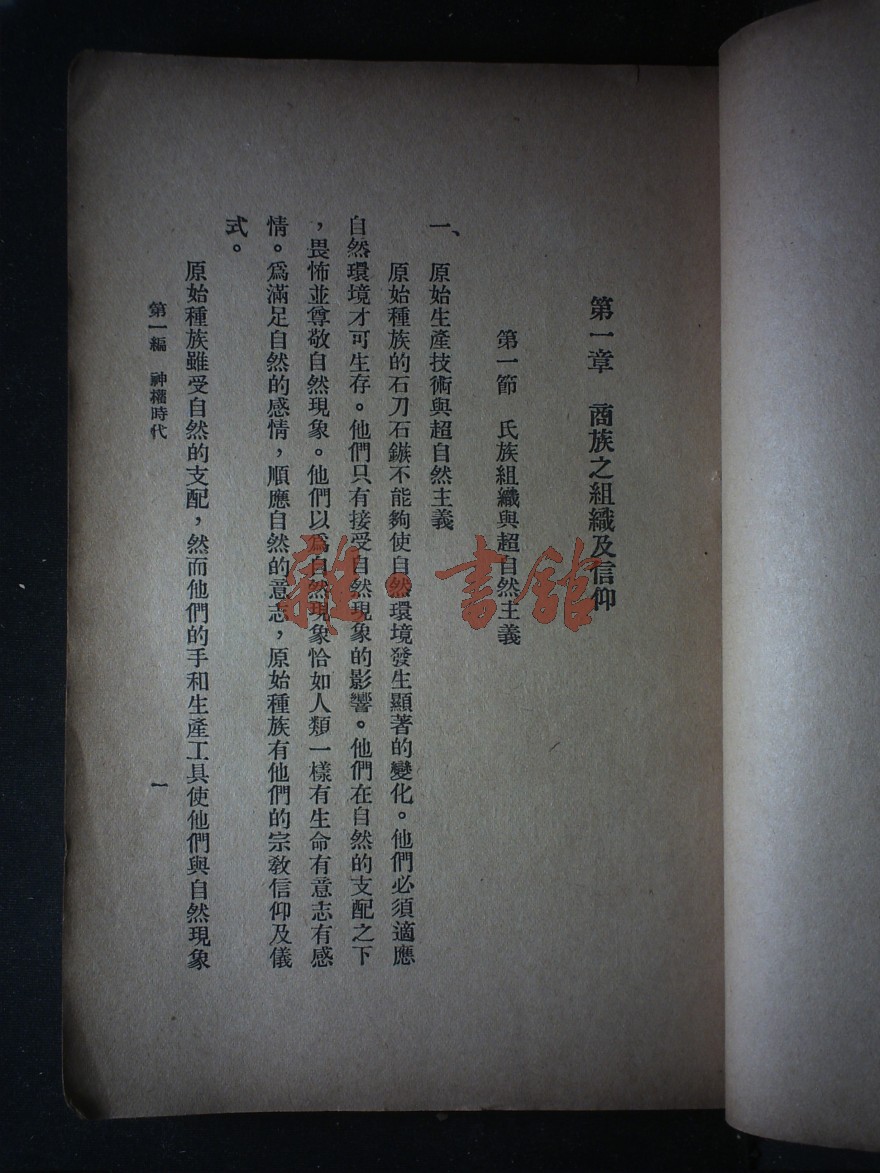 第一章　商族之組織及信仰
第一節　氏族組織與超自然主義
一、原始生產技術與超自然主義
原始種族的石刀石鏃不能夠使自然環境發生顯著的變化。他們必須適應
自然環境才可生存。他們只有接受自然現象的影響。他們在自然的支配之下
，畏怖並尊敬自然現象。他們以爲自然現象恰如人類一樣有生命有意志有感
情。爲滿足自然的感情，順應自然的意志，原始種族有他們的宗教信仰及儀
式。
原始種族雖受自然的支配，然而他們的手和生產工具使他們與自然現象
第一編　神權時代
一
雜·書館